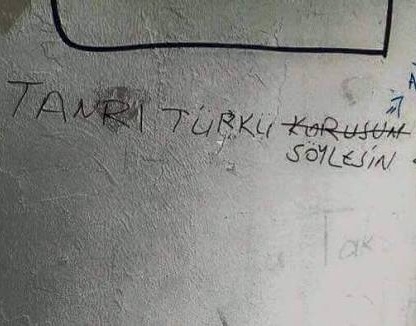 TANRI TÜRKÜ KORUSUN
SÖYLESİN
Tak